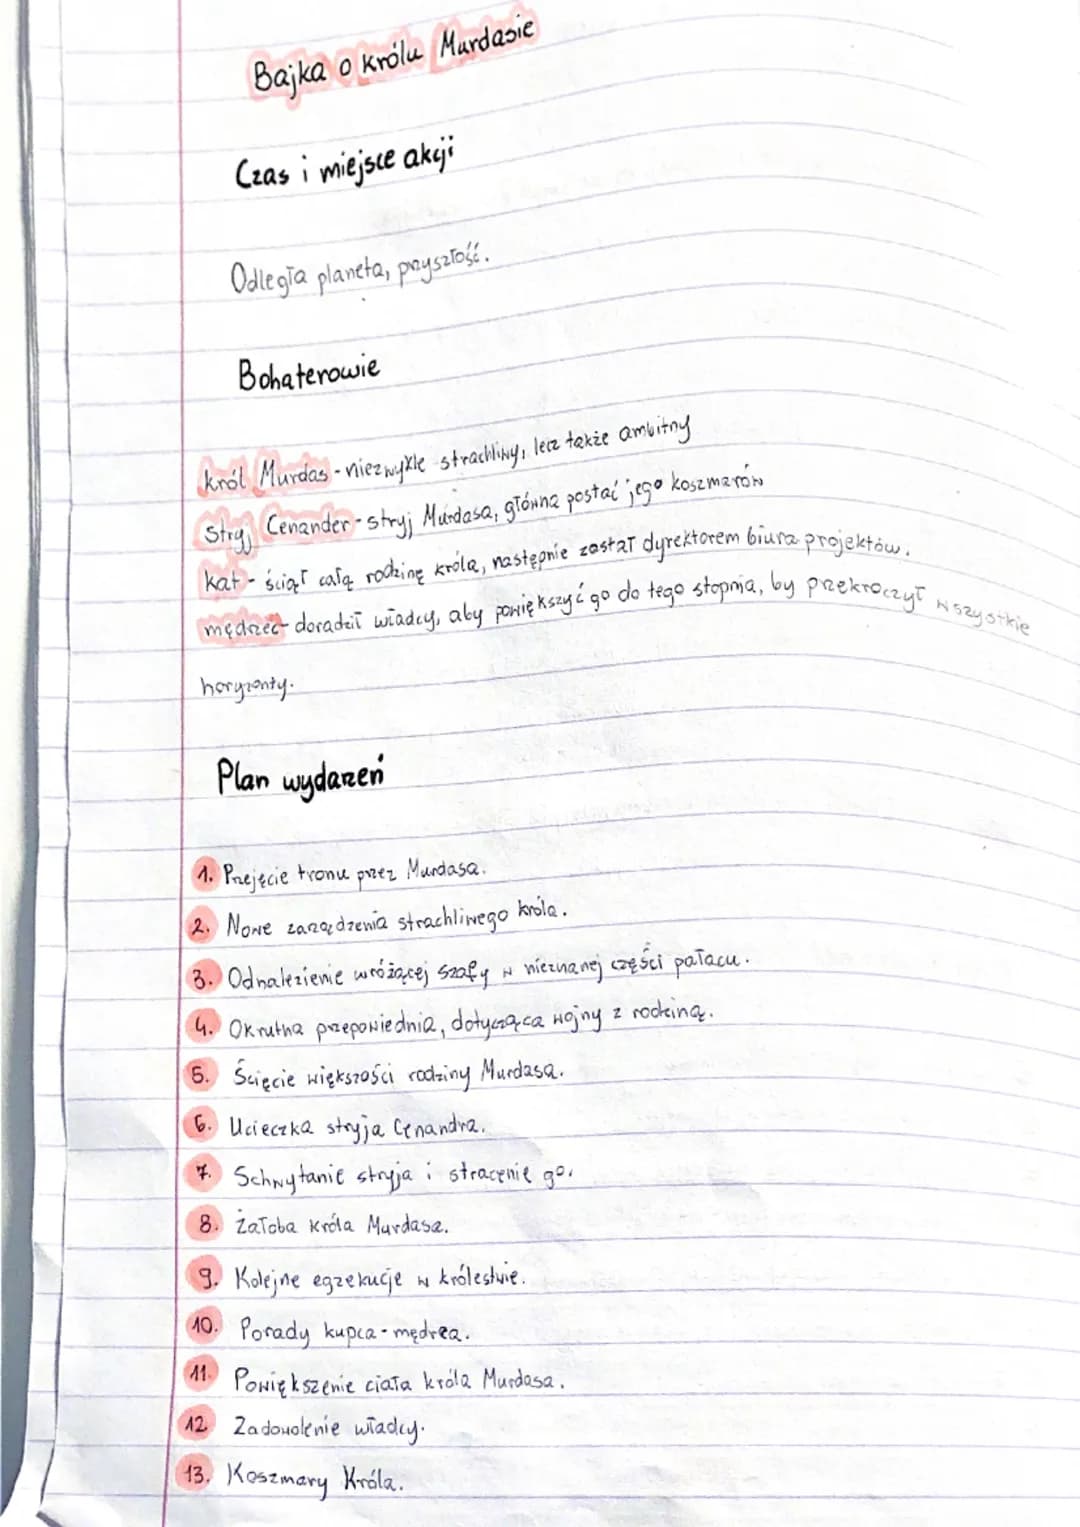 Bajka o królu Murdasie
Czas i miejsce akcji
Odległa planeta, przyszłość.
Bohaterowie
król Murdas - niezwykle strachliwy, lecz także ambitny
stryj Cenander - stryj Murdasa, główna postać jego koszmarów
kat - ściął całą rodzinę króla, następnie został dyrektorem biura projektów.
mędrzec - doradził władcy, aby powiększyć go do tego stopnia, by przekroczył wszystkie
horyzonty.
Plan wydarzeń
1. Przejęcie tronu przez Murdasa.
2. Nowe zarządzenia strachliwego króla.
3. Odnalezienie wróżącej szafy w nieznanej części pałacu.
4. Okrutna przepowiednia, dotycząca wojny z rodziną.
5. Ścięcie większości rodziny Murdasa.
6. Ucieczka stryja Cenandra.
7. Schwytanie stryja i stracenie go.
8. Żałoba króla Murdasa.
9. Kolejne egzekucje w królestwie.
10. Porady kupca - mędrca.
11. Powiększenie ciała króla Murdasa.
12 Zadowolenie władcy.
13. Koszmary Króla.